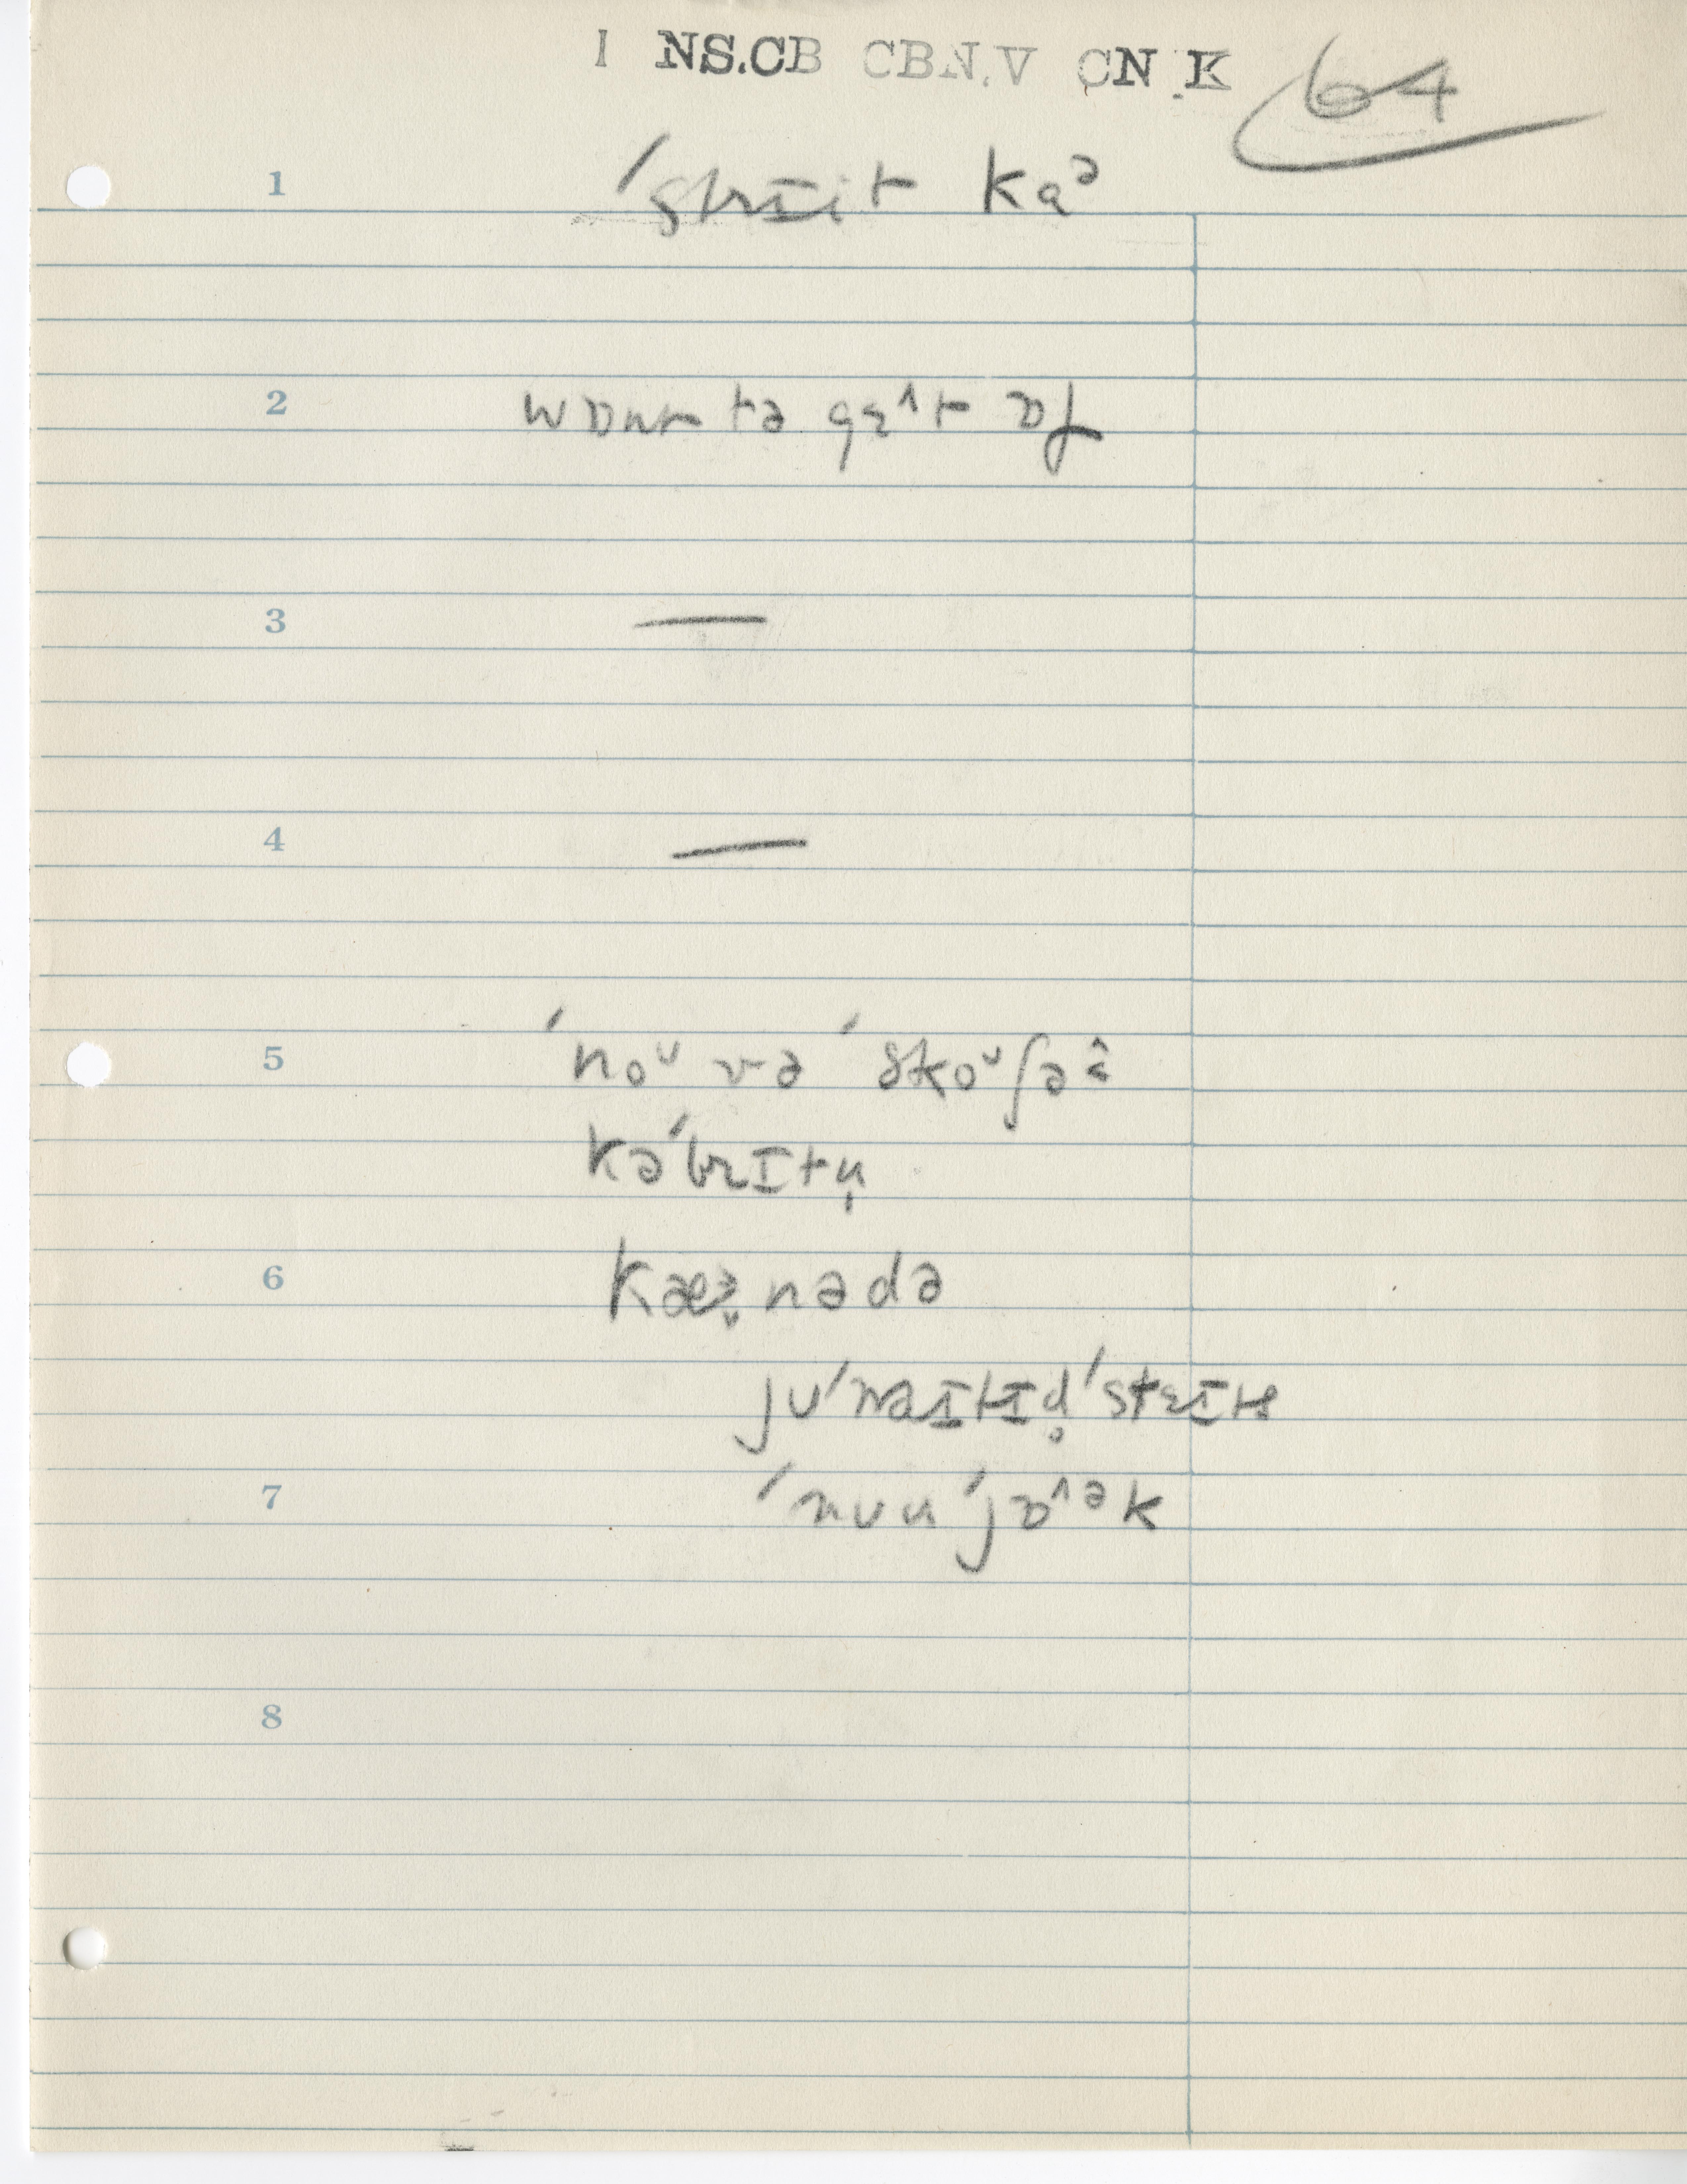 I NS.CB CBN.V CN.K 64
1 ˈstrɪit kɑᵊ
2 wɒnt tə gɛ^t ɒf
3 —
4 —
5 ˈnoᶷ və ˈskoᶷʃə
kəˈbrɪtn̩
6 nədə
juˈnaɪtɪd̥ ˈsteɪts
7 ˈnuu ˈjɒ^ᵊk
8